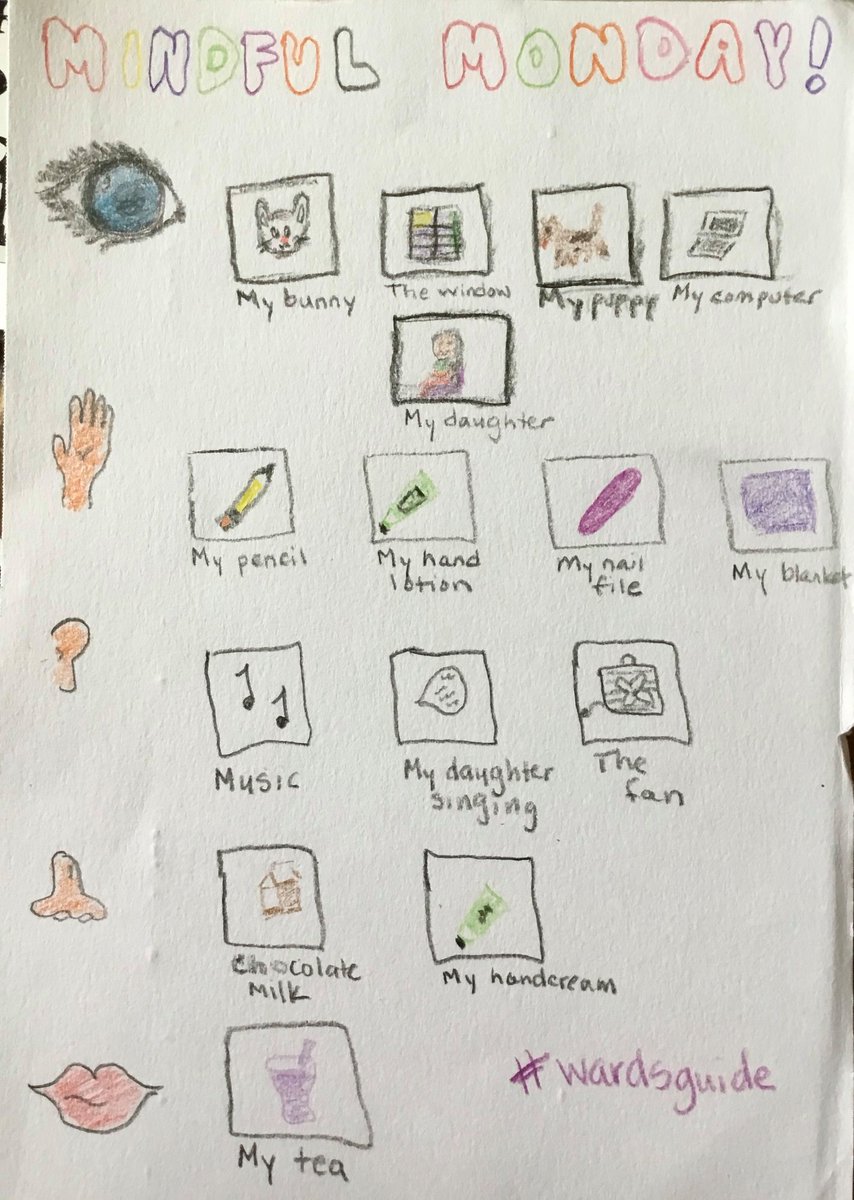 MINDFUL MONDAY!
My bunny
The window
My puppy
My computer
My daughter
My pencil
My hand
lotion
My nail
file
My blanket
Music
My daughter
singing
The
fan
Chocolate
Milk
My handcream
My tea
#wardsguide